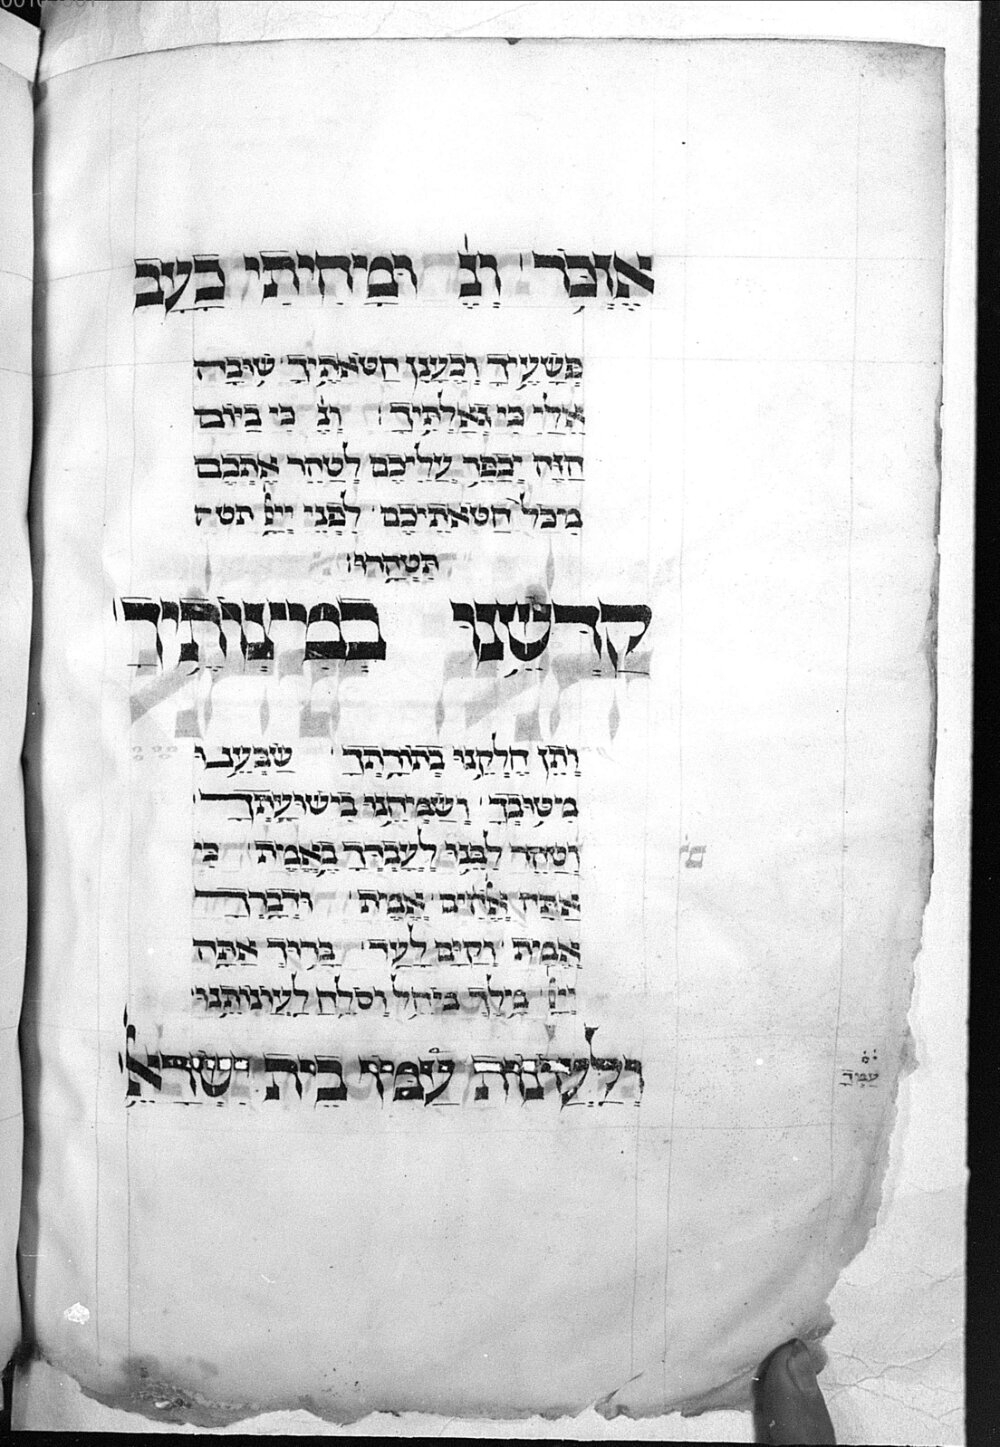 אֶזְכֹּר וְנֹ וּמָחִיתִי כָעָב
פְּשָׁעֶיךָ וְכֶעָנָן חַטֹּאתֶיךָ שׁוּבָה
אֵלַי כִּי גְאַלְתִּיךָ וְנֹ כִּי בַיּוֹם
הַזֶּה יְכַפֵּר עֲלֵיכֶם לְטַהֵר אֶתְכֶם
מִכֹּל חַטֹּאתֵיכֶם לִפְנֵי יְיָ תטה
תִּטְהָרוּ:
קַדְּשֵׁנוּ בְּמִצְוֹתֶיךָ
וְתֵן חֶלְקֵנוּ בְּתוֹרָתֶךָ שַׂבְּעֵנוּ
מִטּוּבֶךָ וְשַׂמְּחֵנוּ בִּישׁוּעָתֶךָ
וְטַהֵר לִבֵּנוּ לְעָבְדְּךָ בֶּאֱמֶת כִּי
אַתָּה אֱהִים אֱמֶת וּדְבָרְךָ
אֱמֶת וְקַיָּם לָעַד בָּרוּךְ אַתָּה
יְיָ מֶלֶךְ מוֹחֵל וְסוֹלֵחַ לַעֲוֹנוֹתֵינוּ
וְלַעֲוֹנוֹת עַמּוֹ בֵּית יִשְׂרָאֵ
עַמְּךָ